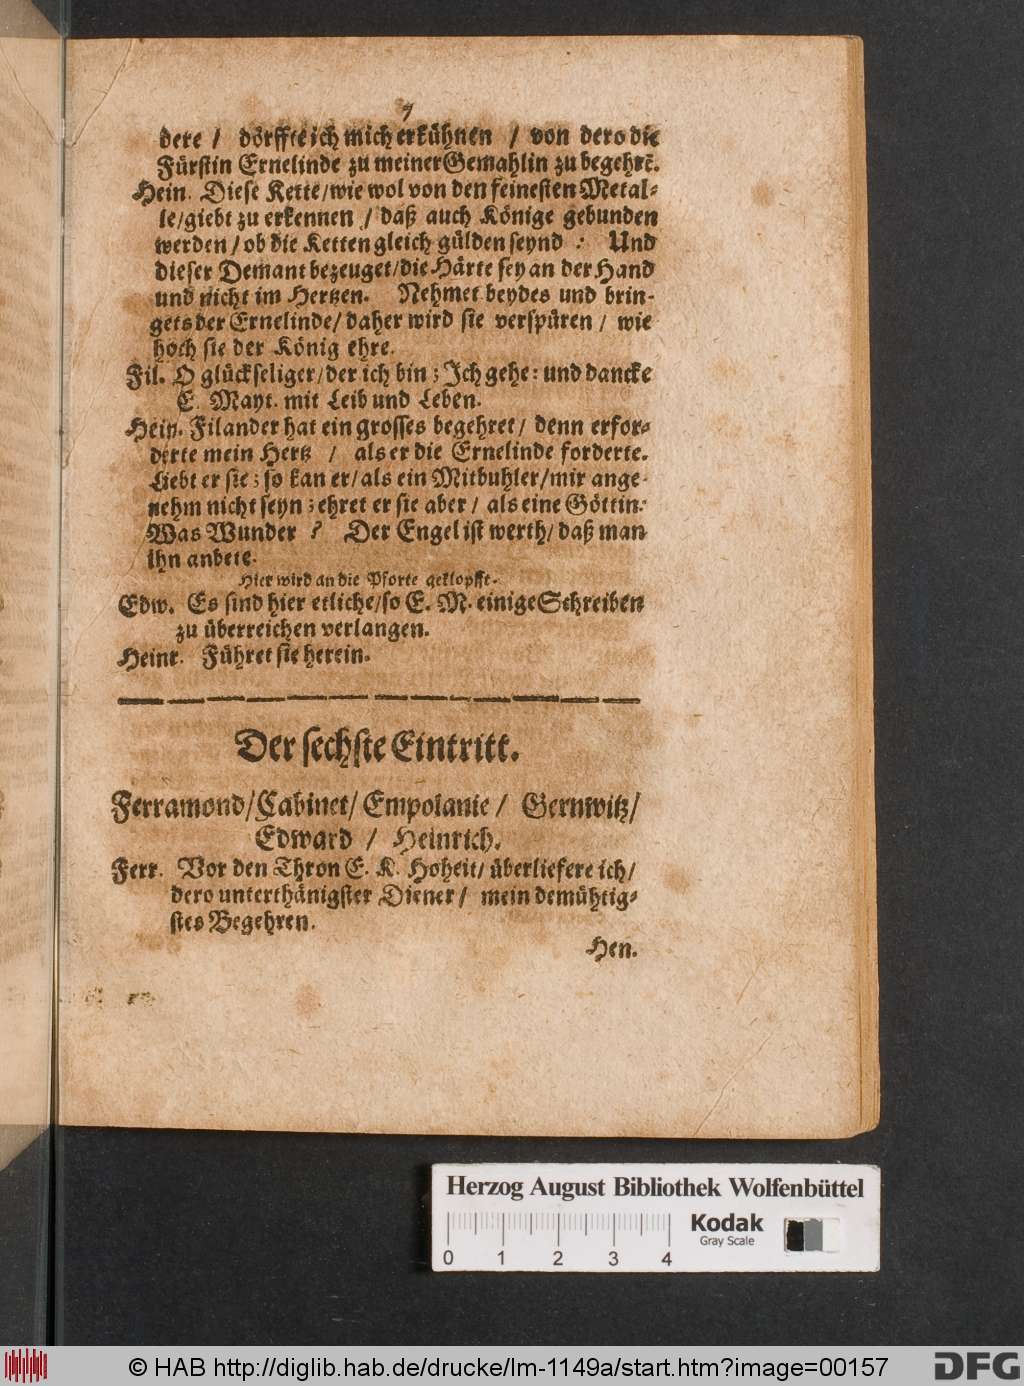 7
dere / dörffte ich mich erkühnen / von dero die
Fürstin Ernelinde zu meiner Gemahlin zu begehrē.
Hein. Diese Kette/wie wol von den feinesten Metal-
le/giebt zu erkennen / daß auch Könige gebunden
werden / ob die Ketten gleich gülden seynd : Und
dieser Demant bezeuget/die Härte sey an der Hand
und nicht im Hertzen. Nehmet beydes und brin-
gets der Ernelinde/ daher wird sie verspüren / wie
hoch sie der König ehre.
Fil. O glückseliger/der ich bin; Ich gehe: und dancke
E. Mayt. mit Leib und Leben.
Hein. Filander hat ein grosses begehret / denn erfor-
derte mein Hertz / als er die Ernelinde forderte.
Liebt er sie; so kan er/als ein Mitbuhler/mir ange-
nehm nicht seyn; ehret er sie aber / als eine Göttin:
Was Wunder ? Der Engel ist werth/ daß man
ihn anbete.
Hier wird an die Pforte geklopfft.
Edw. Es sind hier etliche/so E. M. einige Schreiben
zu überreichen verlangen.
Heinr. Führet sie herein.
Der sechste Eintritt.
Ferramond/Cabinet/ Empolanie / Gernwitz/
Edward / Heinrich.
Ferr. Vor den Thron E. K. Hoheit/ überliefere ich/
dero unterthänigster Diener / mein demühtig-
stes Begehren.
Hen.
Herzog August Bibliothek Wolfenbüttel
Kodak
Gray Scale
0 1 2 3 4
© HAB http://diglib.hab.de/drucke/lm-1149a/start.htm?image=00157
DFG